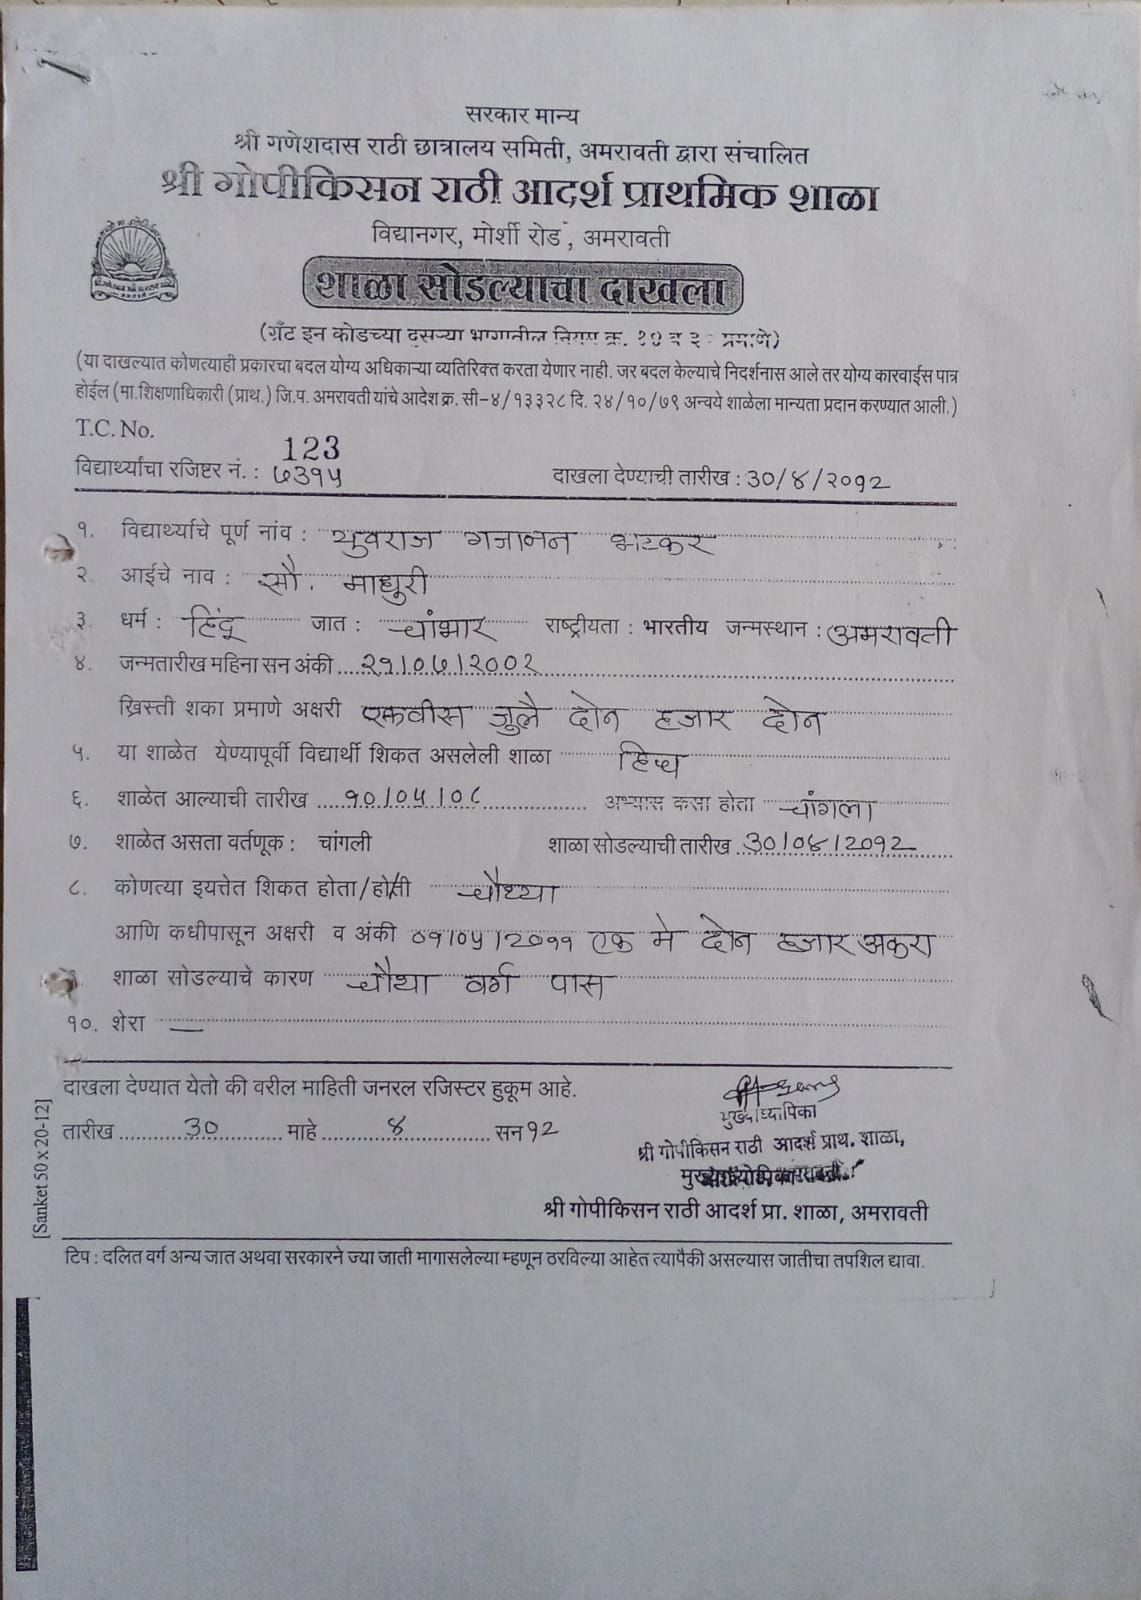 सरकार मान्य
श्री गणेशदास राठी छात्रालय समिती, अमरावती द्वारा संचालित
श्री गोपीकिसन राठी आदर्श प्राथमिक शाळा
विद्यानगर, मोर्शी रोड, अमरावती
शाळा सोडल्याचा दाखला
(ग्रँट इन कोडच्या दुसऱ्या भागातील नियम क्र. १७ व प्रमाणे)
(या दाखल्यात कोणत्याही प्रकारचा बदल योग्य अधिकाऱ्या व्यतिरिक्त करता येणार नाही. जर बदल केल्याचे निदर्शनास आले तर योग्य कारवाईस पात्र
होईल (मा.शिक्षणाधिकारी (प्राथ.) जि.प. अमरावती यांचे आदेश क्र. सी-४/१३३२८ दि. २४/१०/७९ अन्वये शाळेला मान्यता प्रदान करण्यात आली.)
T.C. No. 123
विद्यार्थ्यांचा रजिष्टर नं. : ७३१५ दाखला देण्याची तारीख : ३०/४/२०१२
१. विद्यार्थ्याचे पूर्ण नांव : युवराज गजानन भटकर
२. आईचे नाव : सौ. माधुरी
३. धर्म : हिंदू जात : चांभार राष्ट्रीयता : भारतीय जन्मस्थान : अमरावती
४. जन्मतारीख महिना सन अंकी २१/०७/२००२
ख्रिस्ती शका प्रमाणे अक्षरी एकवीस जुलै दोन हजार दोन
५. या शाळेत येण्यापूर्वी विद्यार्थी शिकत असलेली शाळा हिच
६. शाळेत आल्याची तारीख १०/०५/०८ अभ्यास कसा होता चांगला
७. शाळेत असता वर्तणूक : चांगली शाळा सोडल्याची तारीख ३०/०४/२०१२
८. कोणत्या इयत्तेत शिकत होता/होती चौथ्या
आणि कधीपासून अक्षरी व अंकी ०१/०५/२०११ एक मे दोन हजार अकरा
शाळा सोडल्याचे कारण चौथा वर्ग पास
१०. शेरा —
दाखला देण्यात येतो की वरील माहिती जनरल रजिस्टर हुकूम आहे.
तारीख ३० माहे ४ सन १२
मुख्याध्यापिका
श्री गोपीकिसन राठी आदर्श प्राथ. शाळा,
श्री गोपीकिसन राठी आदर्श प्रा. शाळा, अमरावती
टिप : दलित वर्ग अन्य जात अथवा सरकारने ज्या जाती मागासलेल्या म्हणून ठरविल्या आहेत त्यापैकी असल्यास जातीचा तपशिल द्यावा.
[Sanket 50 x 20-12]